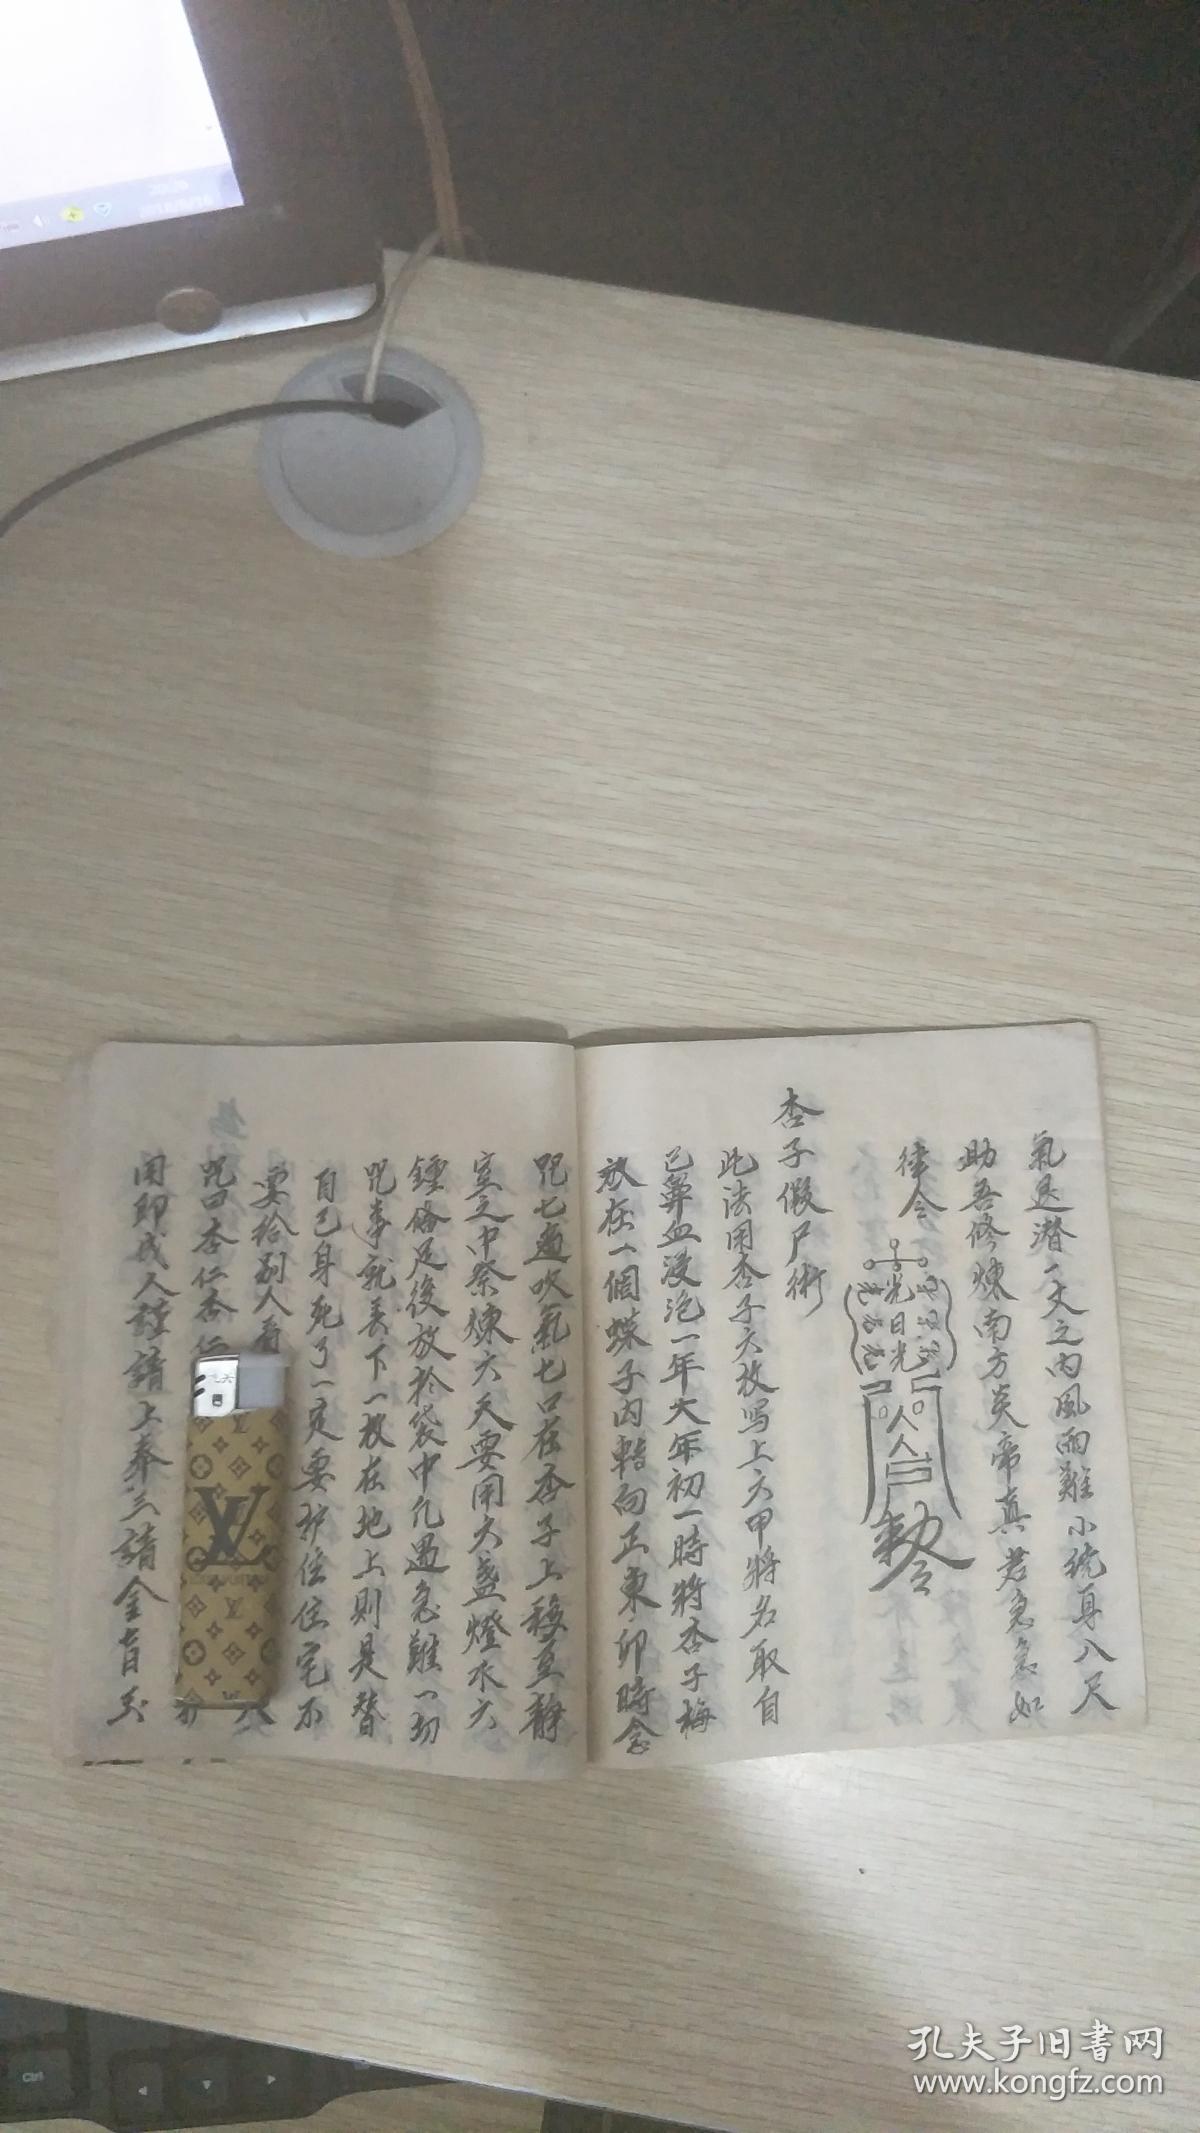 氣退潜一丈之内風雨難小統身八尺
助吾修煉南方炎帝真君急急如
律令
光日光
敕令
杏子假尸術
此法用杏子六枚写上六甲將名取自
己鼻血浸泡一年大年初一時將杏子梅
放在一個蝶子内轄向正東卯時念
咒七遍吹氣七口在杏子上移至靜
室之中祭煉六天要用六盞燈水六
鍾俻足後放於袋中凡遇急難一切
咒畢就丢下一枚在地上則是替
自己身死了一定要护住住宅不
要给别人看
咒曰杏仁杏仁
開即成人謹請上奉三請金言玉
Ctrl
孔夫子旧書网
www.kongfz.com